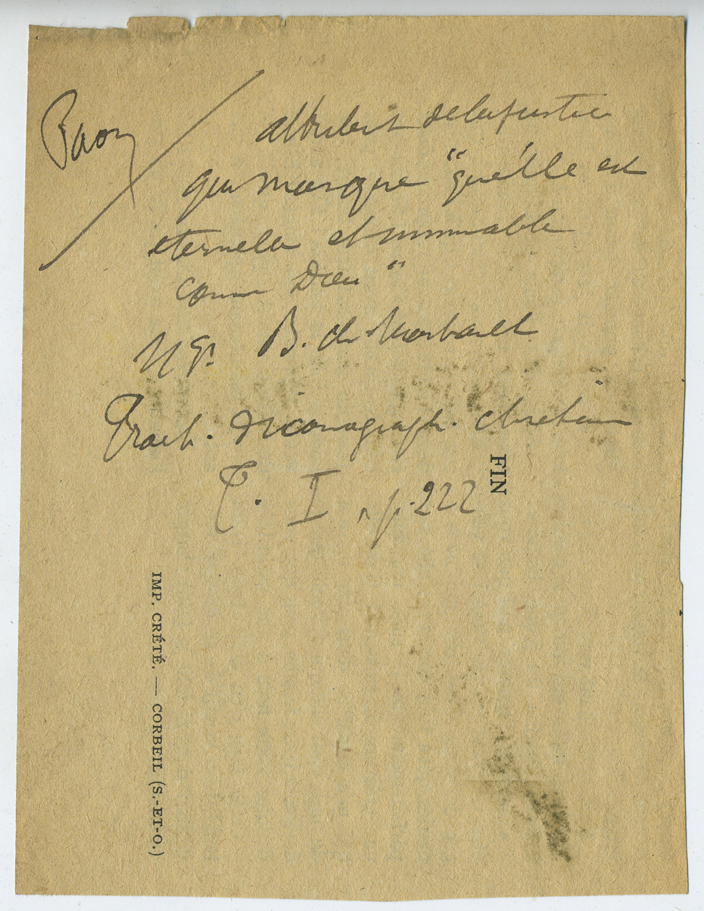 Paon
attribut de la justice
qui marque "qu'elle est
eternelle et immuable
comme Dieu"
Mgr B. de Montault
Trait. d'iconograph. chretien
T. I, p. 222
FIN
IMP. CRÉTÉ. — CORBEIL (S.-ET-O.)